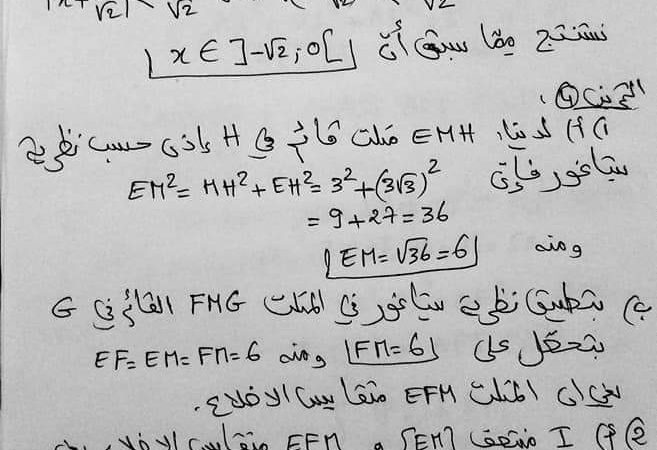 نستنتج ممّا سبق أنّ x ∈ ]-√2 ; 0[
التمرين ④ :
1) أ) لدينا EMH مثلث قائم في H إذن حسب نظرية
بيتاغور فإنّ EM² = MH² + EH² = 3² + (3√3)²
= 9 + 27 = 36
ومنه EM = √36 = 6
ب) بتطبيق نظرية بيتاغور في المثلث FMG القائم في G
نتحصّل على FM = 6 ومنه EF = EM = FM = 6
يعني أن المثلث EFM متقايس الاضلاع.
2) أ) I منتصف [EM] و EFM متقايس الاضلاع